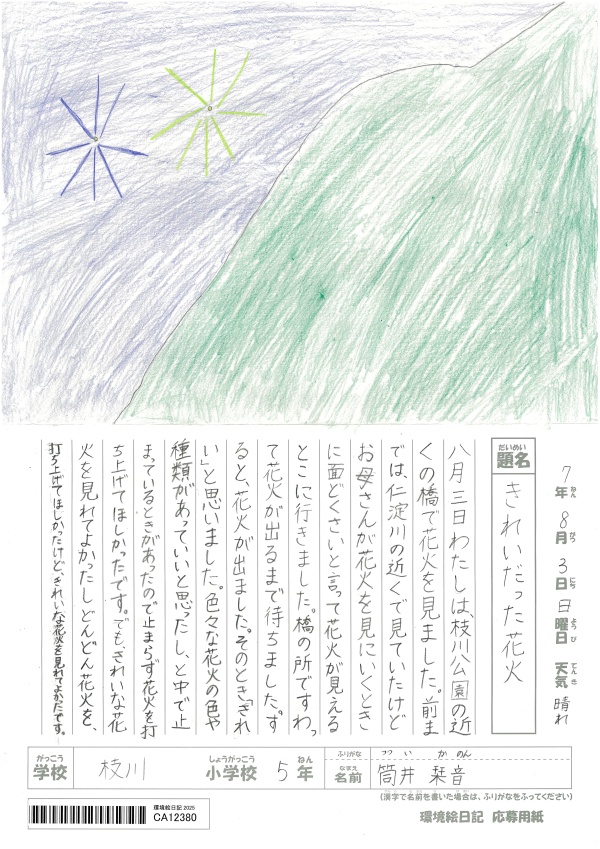 7年 8月 3日 日曜日 天気 晴れ
ねん がつ にち ようび てんき
だいめい
題名 きれいだった花火
八月三日わたしは、枝川公園の近
くの橋で花火を見ました。前ま
では、仁淀川の近くで見ていたけど
お母さんが花火を見にいくとき
に面どくさいと言って花火が見える
とこに行きました。橋の所ですわっ
て花火が出るまで待ちました。す
ると、花火が出ました。そのとき「きれ
い」と思いました。色々な花火の色や
種類があっていいと思ったし、と中で止
まっているときがあったので止まらず花火を打
ち上げてほしかったです。でも、きれいな花
火を見れてよかったしどんどん花火を、
打ち上げてほしかったけど、きれいな花火を見れてよかったです。
がっこう しょうがっこう ねん
学校 枝川 小学校 5年
ふりがな つつ い か のん
なまえ
名前 筒井 栞音
(漢字で名前を書いた場合は、ふりがなをふってください)
環境絵日記 2025
CA12380
環境絵日記 応募用紙